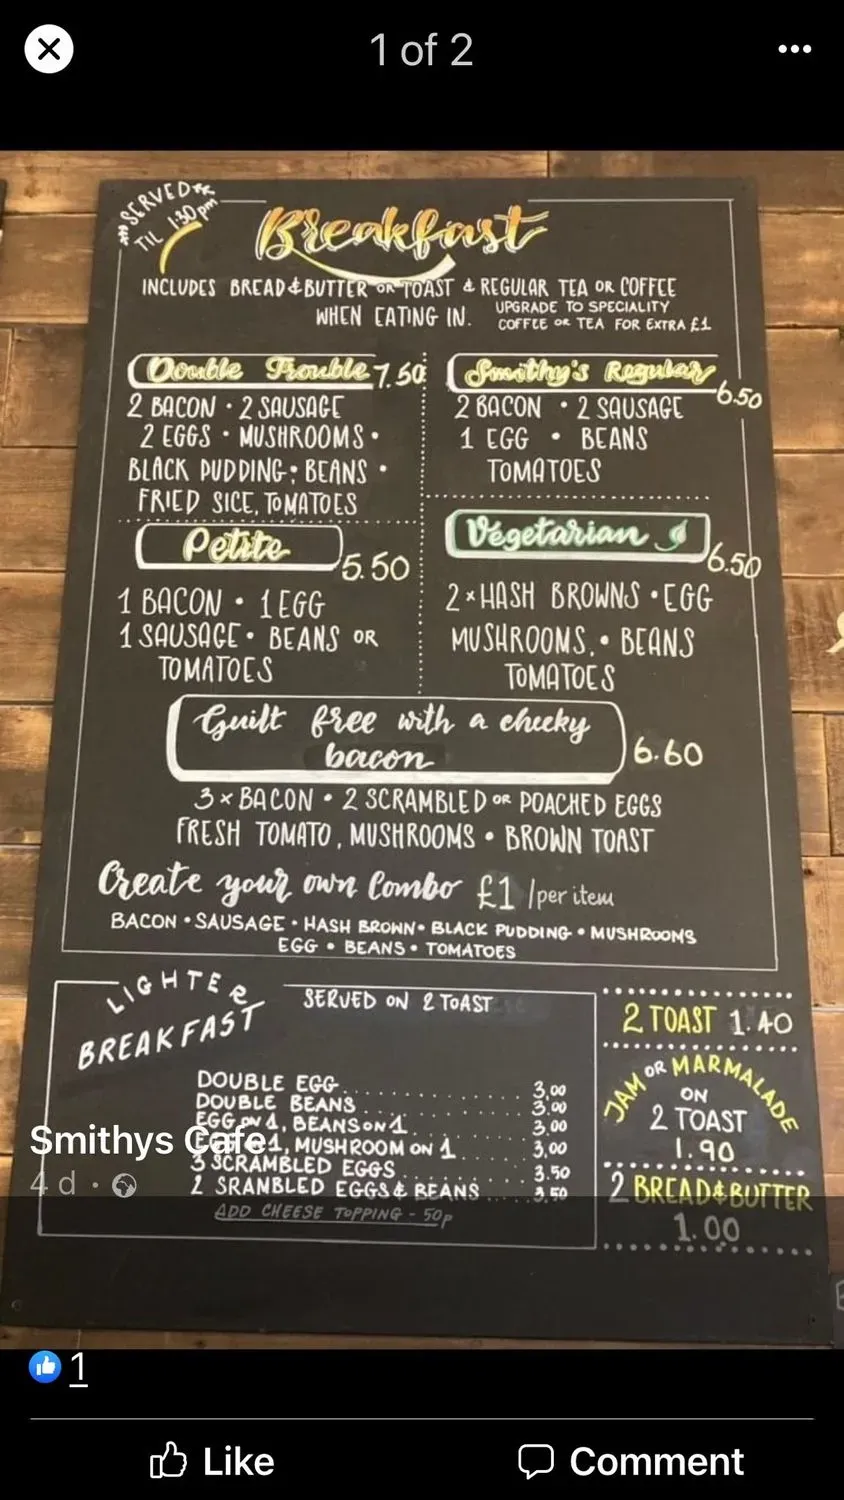 1 of 2
SERVED
TIL 1:30pm
Breakfast
INCLUDES BREAD & BUTTER OR TOAST & REGULAR TEA OR COFFEE
WHEN EATING IN.
UPGRADE TO SPECIALITY
COFFEE OR TEA FOR EXTRA £1
Double Trouble 7.50
2 BACON · 2 SAUSAGE
2 EGGS · MUSHROOMS ·
BLACK PUDDING · BEANS ·
FRIED SICE, TOMATOES
Smithy's Regular 6.50
2 BACON · 2 SAUSAGE
1 EGG · BEANS
TOMATOES
Petite 5.50
1 BACON · 1 EGG
1 SAUSAGE · BEANS OR
TOMATOES
Vegetarian 6.50
2 x HASH BROWNS · EGG
MUSHROOMS. · BEANS
TOMATOES
Guilt free with a cheeky
bacon 6.60
3 x BACON · 2 SCRAMBLED OR POACHED EGGS
FRESH TOMATO, MUSHROOMS · BROWN TOAST
Create your own Combo £1 /per item
BACON · SAUSAGE · HASH BROWN · BLACK PUDDING · MUSHROOMS
EGG · BEANS · TOMATOES
LIGHTER
BREAKFAST
SERVED ON 2 TOAST
DOUBLE EGG 3.00
DOUBLE BEANS 3.00
EGG ON 1, BEANS ON 1 3.00
1, MUSHROOM ON 1 3.00
3 SCRAMBLED EGGS 3.50
2 SRAMBLED EGGS & BEANS 3.50
ADD CHEESE TOPPING - 50p
2 TOAST 1.40
JAM OR MARMALADE
ON
2 TOAST
1.90
2 BREAD & BUTTER
1.00
Smithys Cafe
4 d
1
Like
Comment